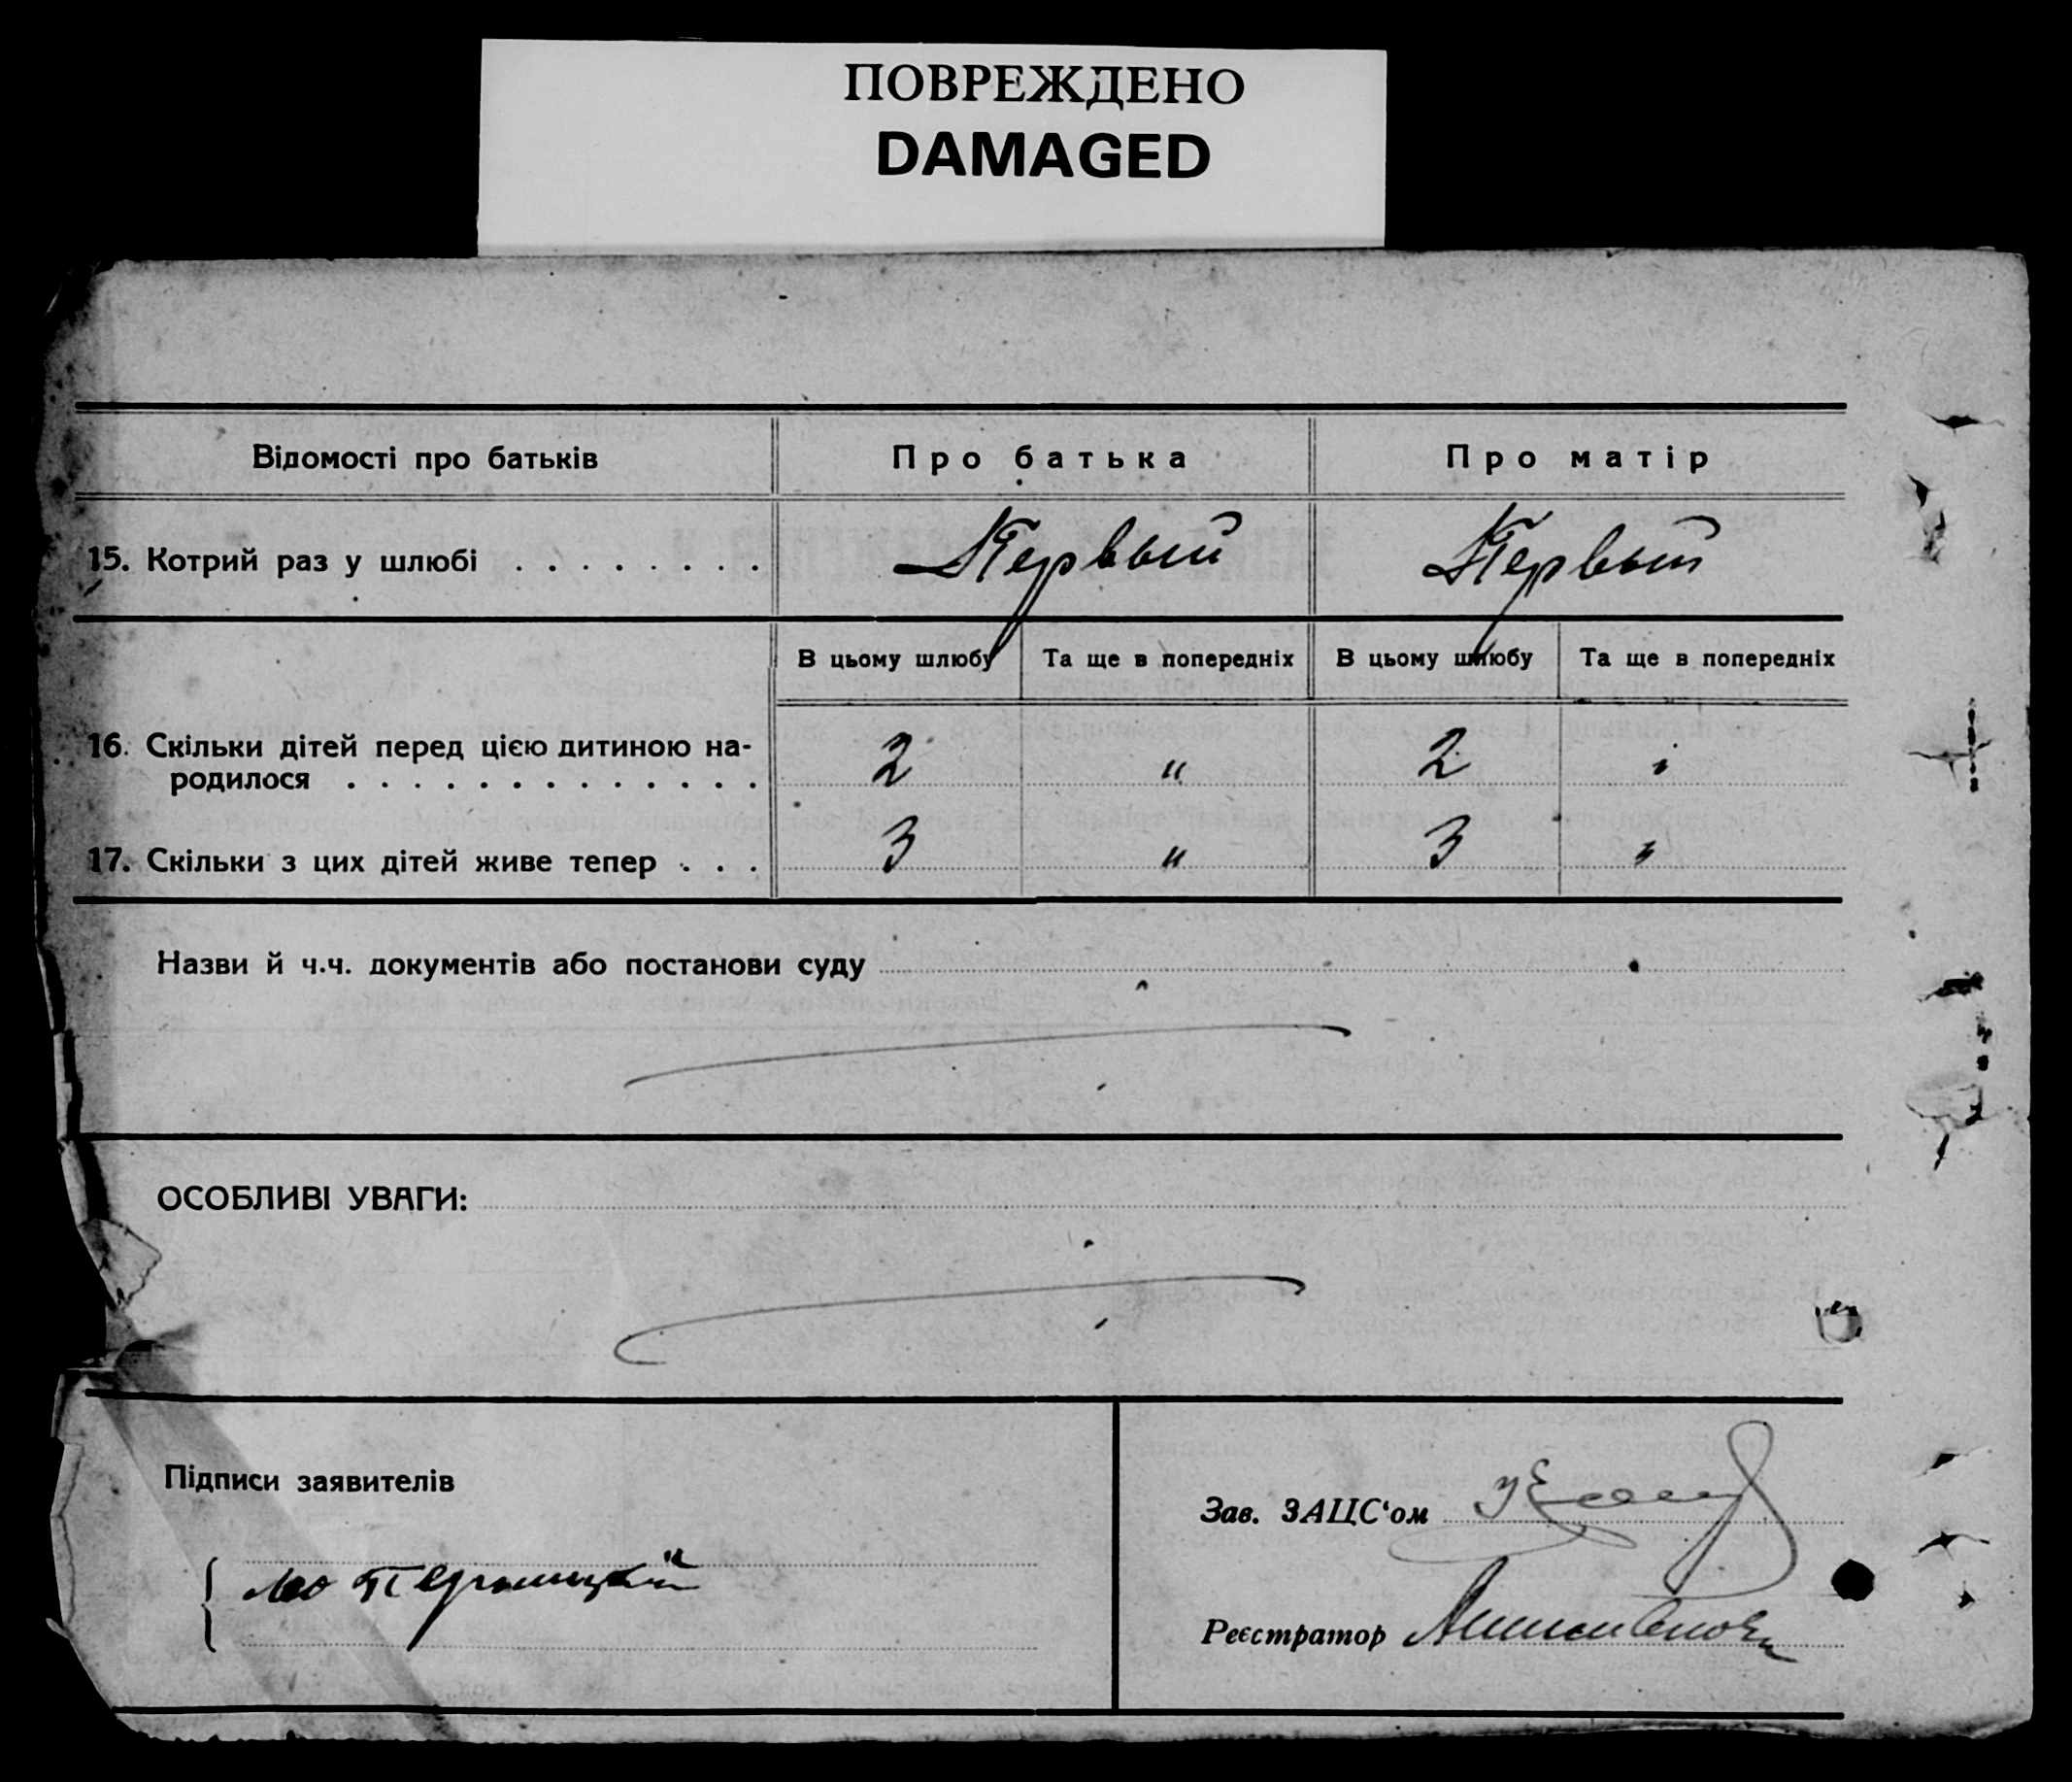 ПОВРЕЖДЕНО
DAMAGED
Відомості про батьків Про батька Про матір
15. Котрий раз у шлюбі . . . . . . . . Первый Первый
В цьому шлюбу Та ще в попередніх В цьому шлюбу Та ще в попередніх
16. Скільки дітей перед цією дитиною на-
родилося . . . . . . . . . . . . . 2 " 2 "
17. Скільки з цих дітей живе тепер . . . 3 " 3 "
Назви й ч.ч. документів або постанови суду
ОСОБЛИВІ УВАГИ:
Підписи заявителів
Зав. ЗАЦС'ом
Реєстратор